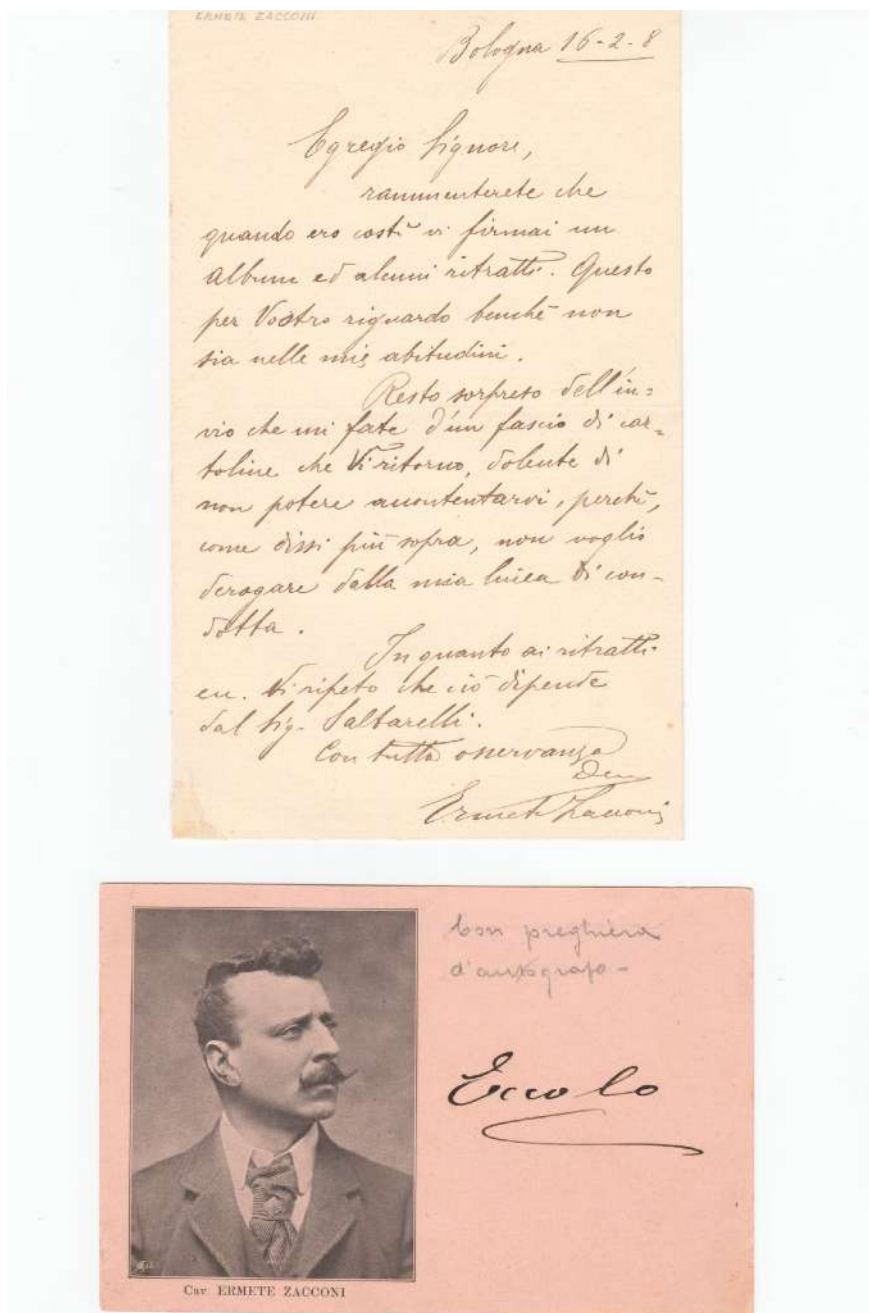 ERMETE ZACCONI
Bologna 16-2-8
Egregio Signore,
rammenterete che
quando ero costì vi firmai un
album ed alcuni ritratti. Questo
per Vostro riguardo benchè non
sia nelle mie abitudini.
Resto sorpreso dell'in=
vio che mi fate d'un fascio di car=
toline che Vi ritorno, dolente di
non potere accontentarvi, perchè,
come dissi più sopra, non voglio
derogare dalla mia linea di con-
dotta.
In quanto ai ritratti
Vi ripeto che ciò dipende
dal Sig. Saltarelli.
Con tutta osservanza
Ermete Zacconi
Con preghiera
d'autografo -
Eccolo
Cav. ERMETE ZACCONI